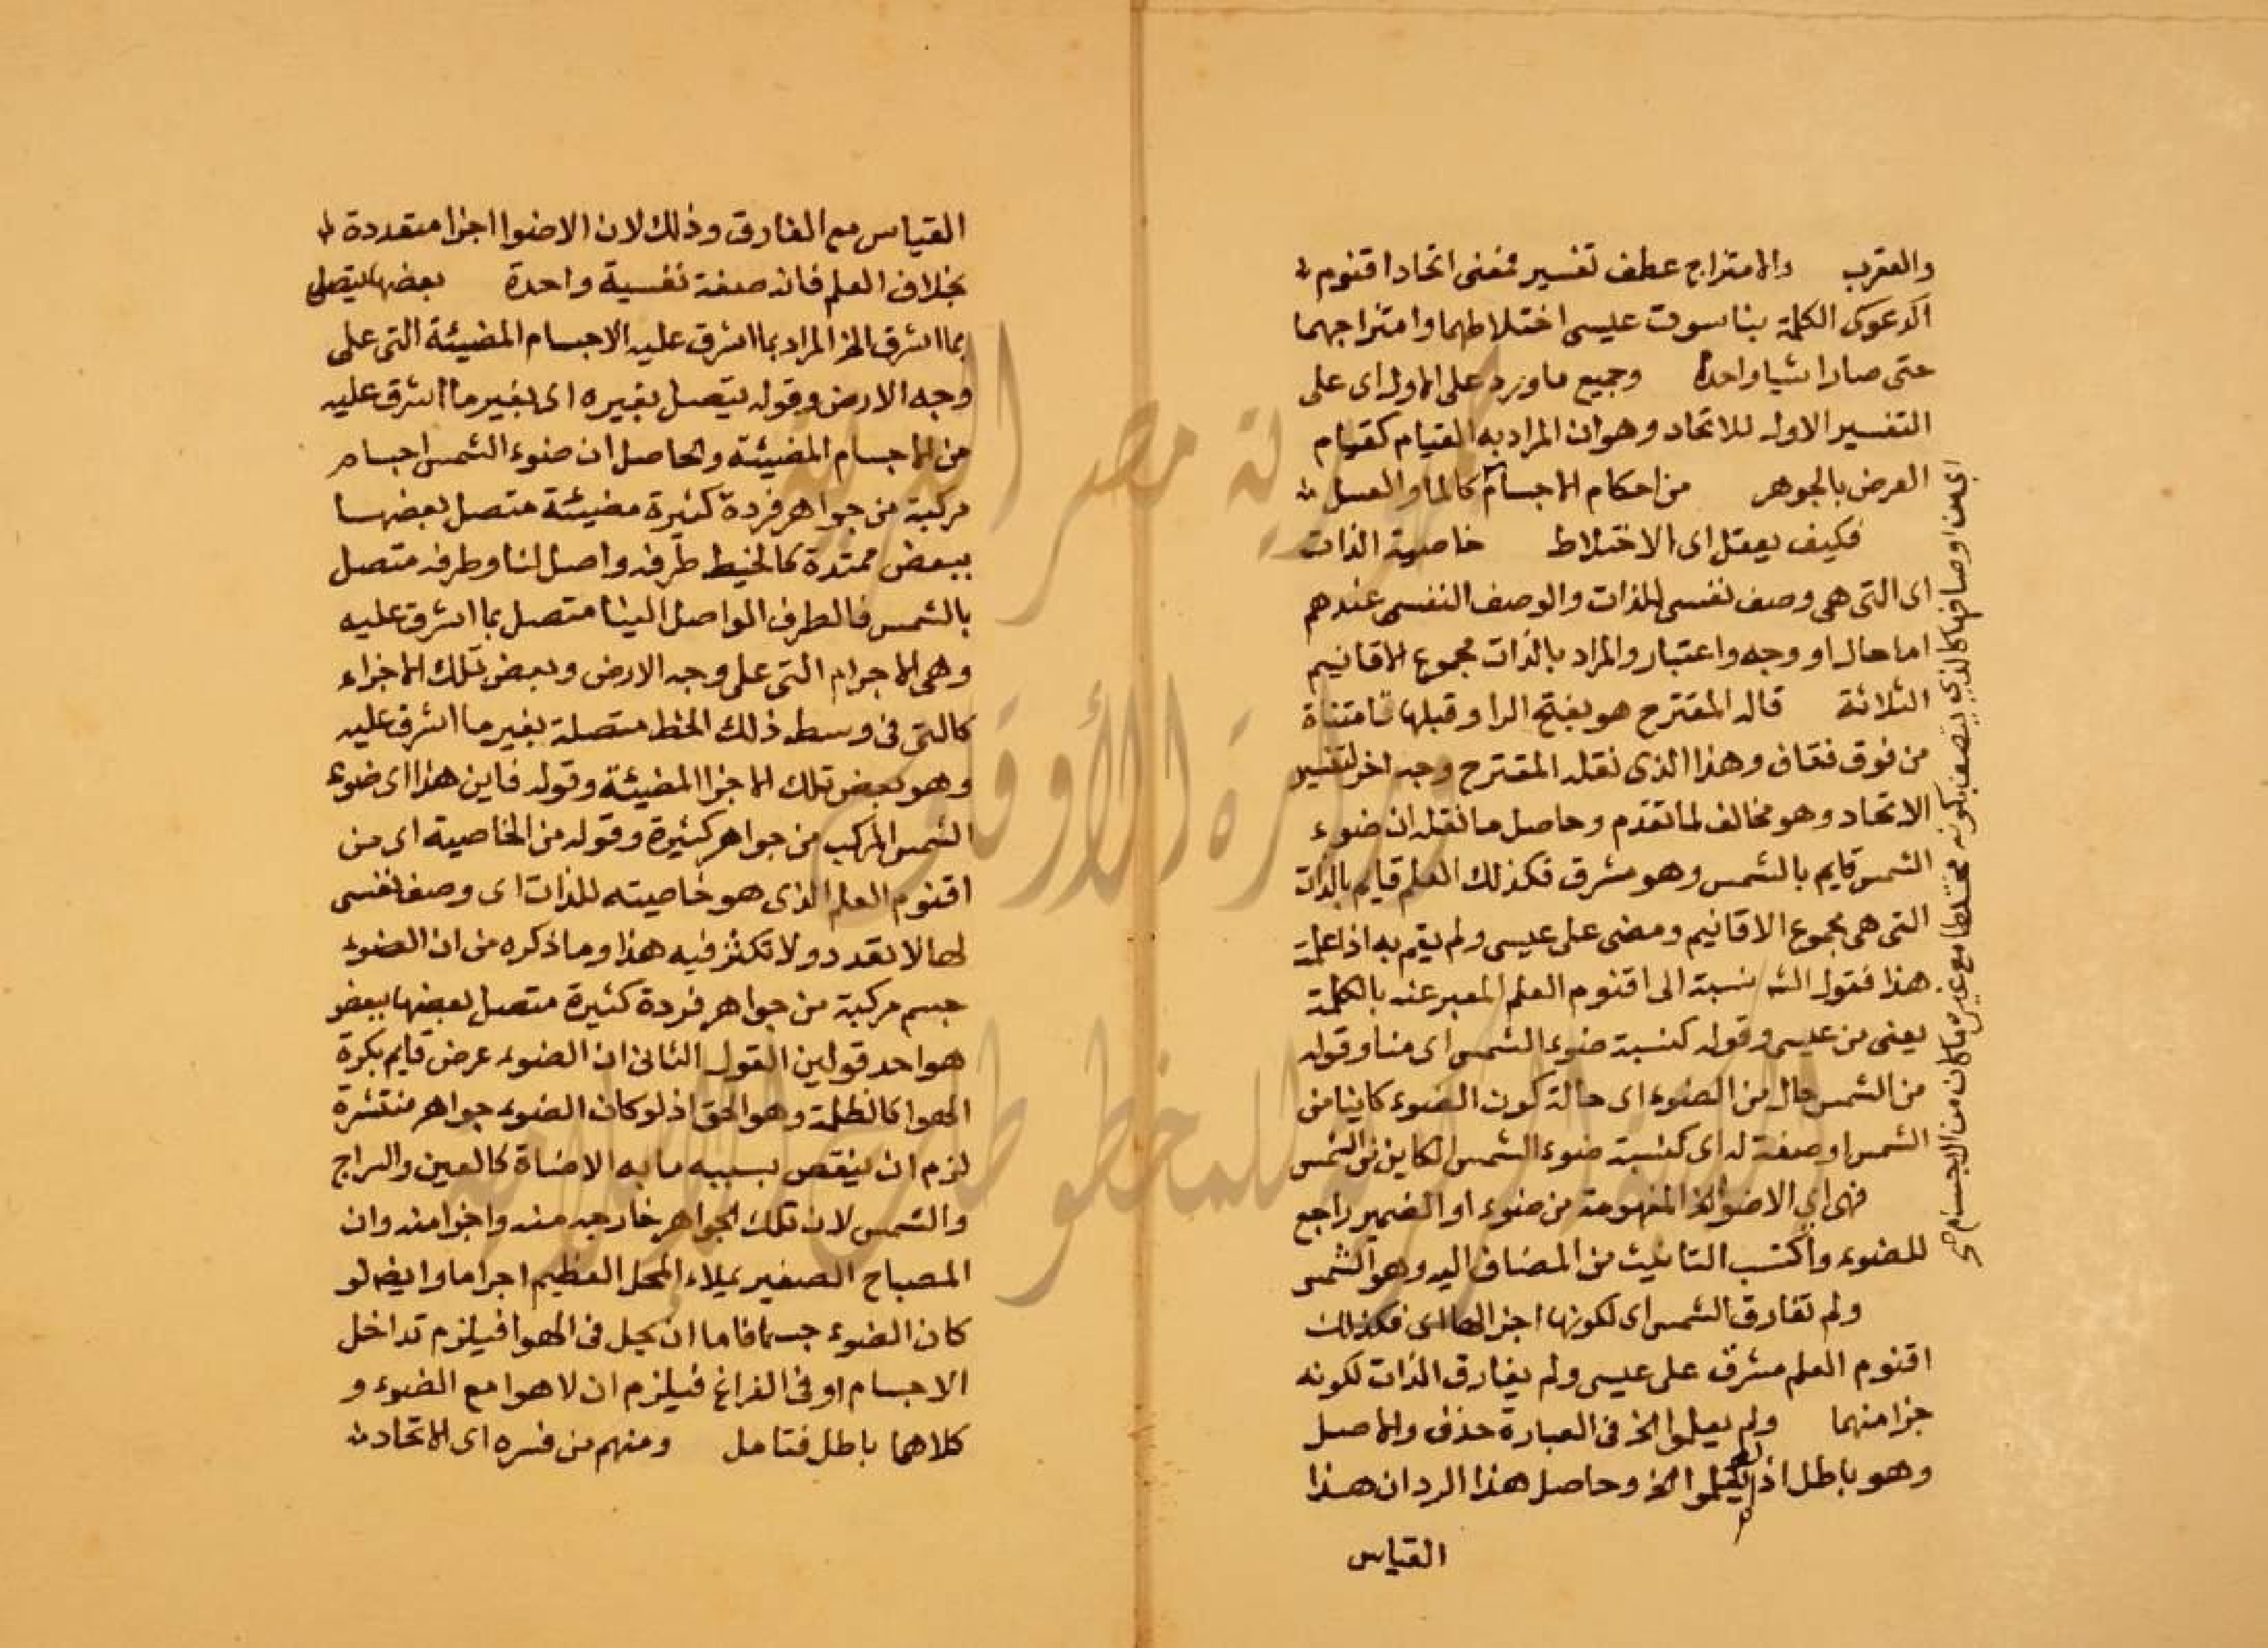 والعقرب والامتزاج عطف تفسير فمعنى اتحاد اقنوم
الدعوى الكلمة بناسوت عيسى اختلاطهما وامتزاجهما
حتى صارا شيا واحدا وجميع ما ورد على الاول اى على
التفسير الاول للاتحاد وهو ان المراد به القيام كقيام
العرض بالجوهر من احكام الاجسام كالما والعسل
فكيف يعقل اى الاختلاط خاصية الذات
اى التى هى وصف نفسى للذات والوصف النفسى عندهم
اما حال او وجه واعتبار والمراد بالذات مجموع الاقانيم
الثلاثة قال المقترح هو بفتح الرا وقبلها تا مثناة
من فوق فقاف وهذا الذى نقله المقترح وجه اخر لتفسير
الاتحاد وهو مخالف لما تقدم وحاصل ما نقله ان ضوء
الشمس قايم بالشمس وهو مشرق فكذلك العلم قايم بالذات
التى هى مجموع الاقانيم ومضى على عيسى ولم يقم به اذا علمت
هذا فقول الشه نسبة الى اقنوم العلم المعبر عنه بالكلمة
يعنى من عيسى وقوله كنسبة ضوء الشمس اى منا وقوله
من الشمس حال من الضوء اى حالة كون الضوء كاينا من
الشمس او صفة له اى كنسبة ضوء الشمس الكاين من الشمس
فهى اى الاضوا الخ المفهومة من ضوء او الضمير راجع
للضوء واكتسب التانيث من المضاف اليه وهو الشمس
ولم تفارق الشمس اى لكونها اجزا لها اى فكذلك
اقنوم العلم مشرق على عيسى ولم يفارق الذات لكونه
جزا منهما ولم يعلموا الخ فى العبارة حذف والاصل
وهو باطل اذ لم يعلموا الخ وحاصل هذا الرد ان هذا
القياس
اى من اوصافها كالذى يتصف بكونه مختلطا مع غيره ما كان من الاجسام صح
القياس مع الفارق وذلك لان الاضوا اجزا متعددة
بخلاف العلم فانه صفة نفسية واحدة بعضها يتصل
بما اشرق الخ المراد بما اشرق عليه الاجسام المضيئة التى على
وجه الارض وقوله يتصل بغيره اى بغير ما اشرق عليه
من الاجسام المضيئة والحاصل ان ضوء الشمس اجسام
مركبة من جواهر فردة كثيرة مضيئة متصل بعضها
ببعض ممتدة كالخيط طرفه واصل لنا وطرفه متصل
بالشمس فالطرف الواصل الينا متصل بما اشرق عليه
وهى الاجرام التى على وجه الارض وبعض تلك الاجزاء
كالتى فى وسط ذلك الخط متصلة بغير ما اشرق عليه
وهو بعض تلك الاجزا المضيئة وقوله فاين هذا اى ضوء
الشمس المركب من جواهر كثيرة وقوله من الخاصية اى من
اقنوم العلم الذى هو خاصيته للذات اى وصف نفسى
لها لا تعدد ولا تكثر فيه هذا وما ذكره من ان الضوء
جسم مركبة من جواهر فردة كثيرة متصل بعضها ببعض
هو احد قولين القول الثانى ان الضوء عرض قايم بكرة
الهوا كالظلمة وهو الحق اذ لو كان الضوء جواهر منتشرة
لزم ان ينقص بسببه ما به الاضاة كالعين والسراج
والشمس لان تلك الجواهر خارجه منه واجزا منه وان
المصباح الصغير يملاء المحل العظيم اجراما وايضه لو
كان الضوء جسما فاما ان يحل فى الهوا فيلزم تداخل
الاجسام او فى الفراغ فيلزم ان لا هوا مع الضوء و
كلاهما باطل فتامل ومنهم من فسره اى الاتحاد